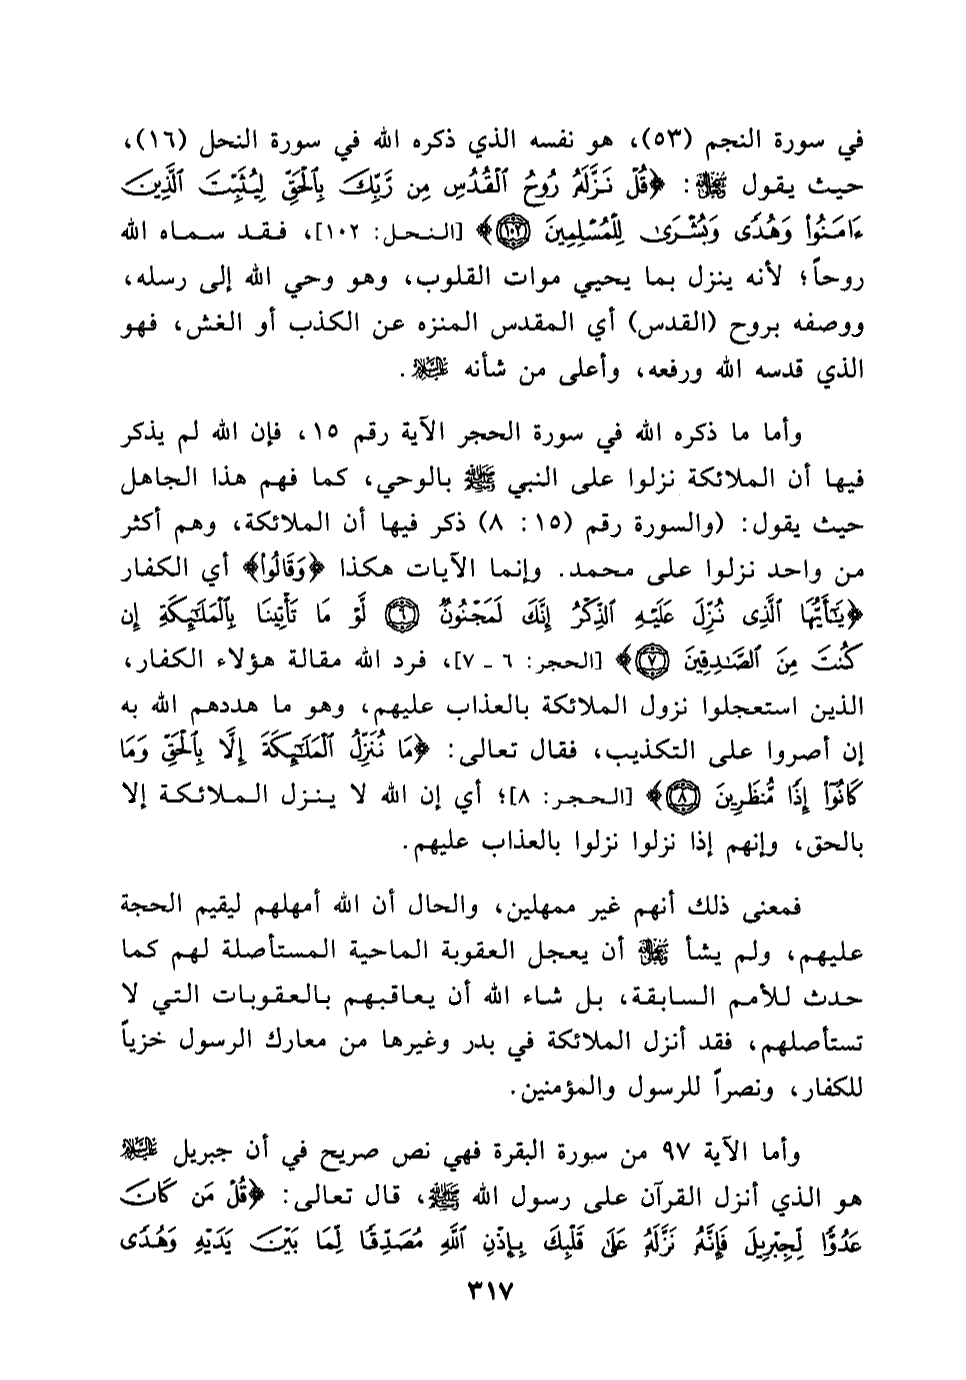 في سورة النجم (٥٣)، هو نفسه الذي ذكره الله في سورة النحل (١٦)،
حيث يقول ﷻ: ﴿قُلْ نَزَّلَهُۥ رُوحُ ٱلْقُدُسِ مِن رَّبِّكَ بِٱلْحَقِّ لِيُثَبِّتَ ٱلَّذِينَ
ءَامَنُوا۟ وَهُدًى وَبُشْرَىٰ لِلْمُسْلِمِينَ ١٠٢﴾ [النحل: ١٠٢]، فقد سماه الله
روحاً؛ لأنه ينزل بما يحيي موات القلوب، وهو وحي الله إلى رسله،
ووصفه بروح (القدس) أي المقدس المنزه عن الكذب أو الغش، فهو
الذي قدسه الله ورفعه، وأعلى من شأنه عليه السلام.
وأما ما ذكره الله في سورة الحجر الآية رقم ١٥، فإن الله لم يذكر
فيها أن الملائكة نزلوا على النبي ﷺ بالوحي، كما فهم هذا الجاهل
حيث يقول: (والسورة رقم (١٥: ٨) ذكر فيها أن الملائكة، وهم أكثر
من واحد نزلوا على محمد. وإنما الآيات هكذا ﴿وَقَالُوا۟﴾ أي الكفار
﴿يَـٰٓأَيُّهَا ٱلَّذِى نُزِّلَ عَلَيْهِ ٱلذِّكْرُ إِنَّكَ لَمَجْنُونٌ ٦ لَّوْ مَا تَأْتِينَا بِٱلْمَلَـٰٓئِكَةِ إِن
كُنتَ مِنَ ٱلصَّـٰدِقِينَ ٧﴾ [الحجر: ٦ - ٧]، فرد الله مقالة هؤلاء الكفار،
الذين استعجلوا نزول الملائكة بالعذاب عليهم، وهو ما هددهم الله به
إن أصروا على التكذيب، فقال تعالى: ﴿مَا نُنَزِّلُ ٱلْمَلَـٰٓئِكَةَ إِلَّا بِٱلْحَقِّ وَمَا
كَانُوٓا۟ إِذًا مُّنظَرِينَ ٨﴾ [الحجر: ٨]؛ أي إن الله لا ينزل الملائكة إلا
بالحق، وإنهم إذا نزلوا نزلوا بالعذاب عليهم.
فمعنى ذلك أنهم غير ممهلين، والحال أن الله أمهلهم ليقيم الحجة
عليهم، ولم يشأ ﷻ أن يعجل العقوبة الماحية المستأصلة لهم كما
حدث للأمم السابقة، بل شاء الله أن يعاقبهم بالعقوبات التي لا
تستأصلهم، فقد أنزل الملائكة في بدر وغيرها من معارك الرسول خزياً
للكفار، ونصراً للرسول والمؤمنين.
وأما الآية ٩٧ من سورة البقرة فهي نص صريح في أن جبريل عليه السلام
هو الذي أنزل القرآن على رسول الله ﷺ، قال تعالى: ﴿قُلْ مَن كَانَ
عَدُوًّا لِّجِبْرِيلَ فَإِنَّهُۥ نَزَّلَهُۥ عَلَىٰ قَلْبِكَ بِإِذْنِ ٱللَّهِ مُصَدِّقًا لِّمَا بَيْنَ يَدَيْهِ وَهُدًى
٣١٧